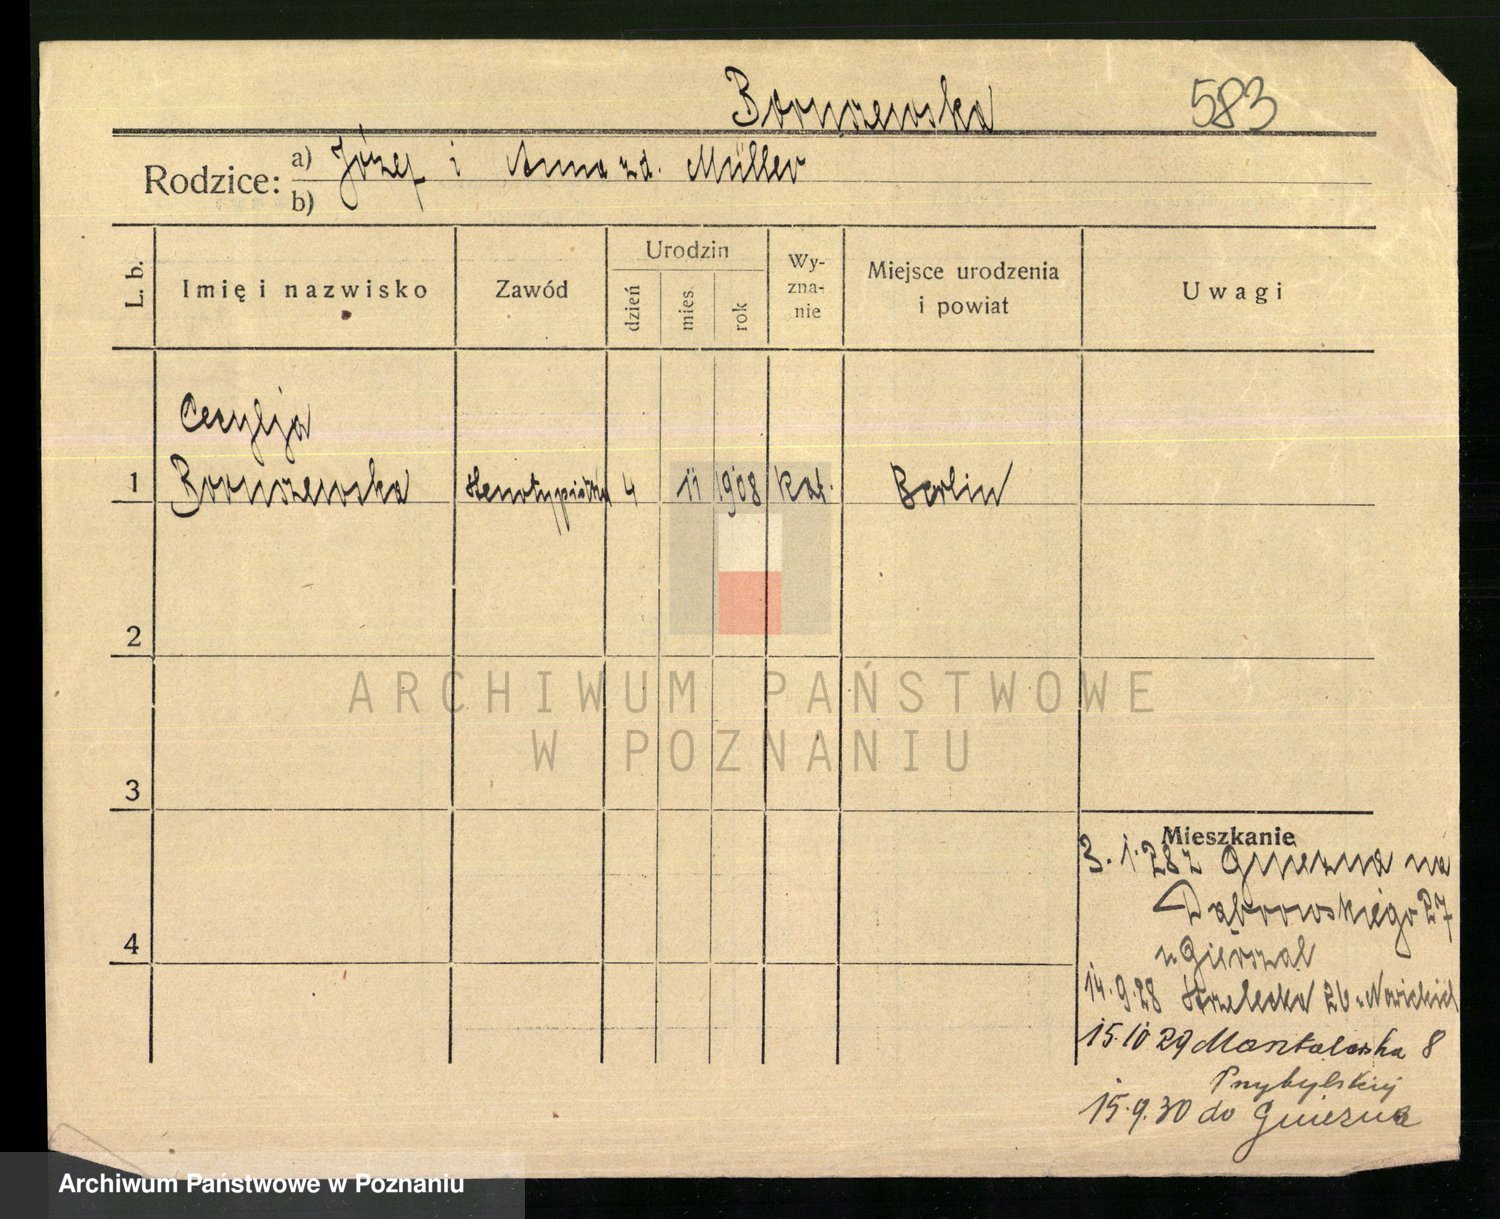 Boruszewska 583
Rodzice: a) Józef i Anna zd. Müller
b)
L. b. Imię i nazwisko Zawód Urodzin dzień mies. rok Wyznanie Miejsce urodzenia i powiat Uwagi
Cecylja
1 Boruszewska stenotypistka 4 11 1908 kat. Berlin
2
3
4
Mieszkanie
3. 1. 28 z Gniezna na
Dąbrowskiego 27
u Gierszal
14. 9. 28 Strzelecka 26 u Nowickich
15. 10 29 Masztalarska 8
Przybylskiej
15. 9. 30 do Gniezna
ARCHIWUM PAŃSTWOWE
W POZNANIU
Archiwum Państwowe w Poznaniu